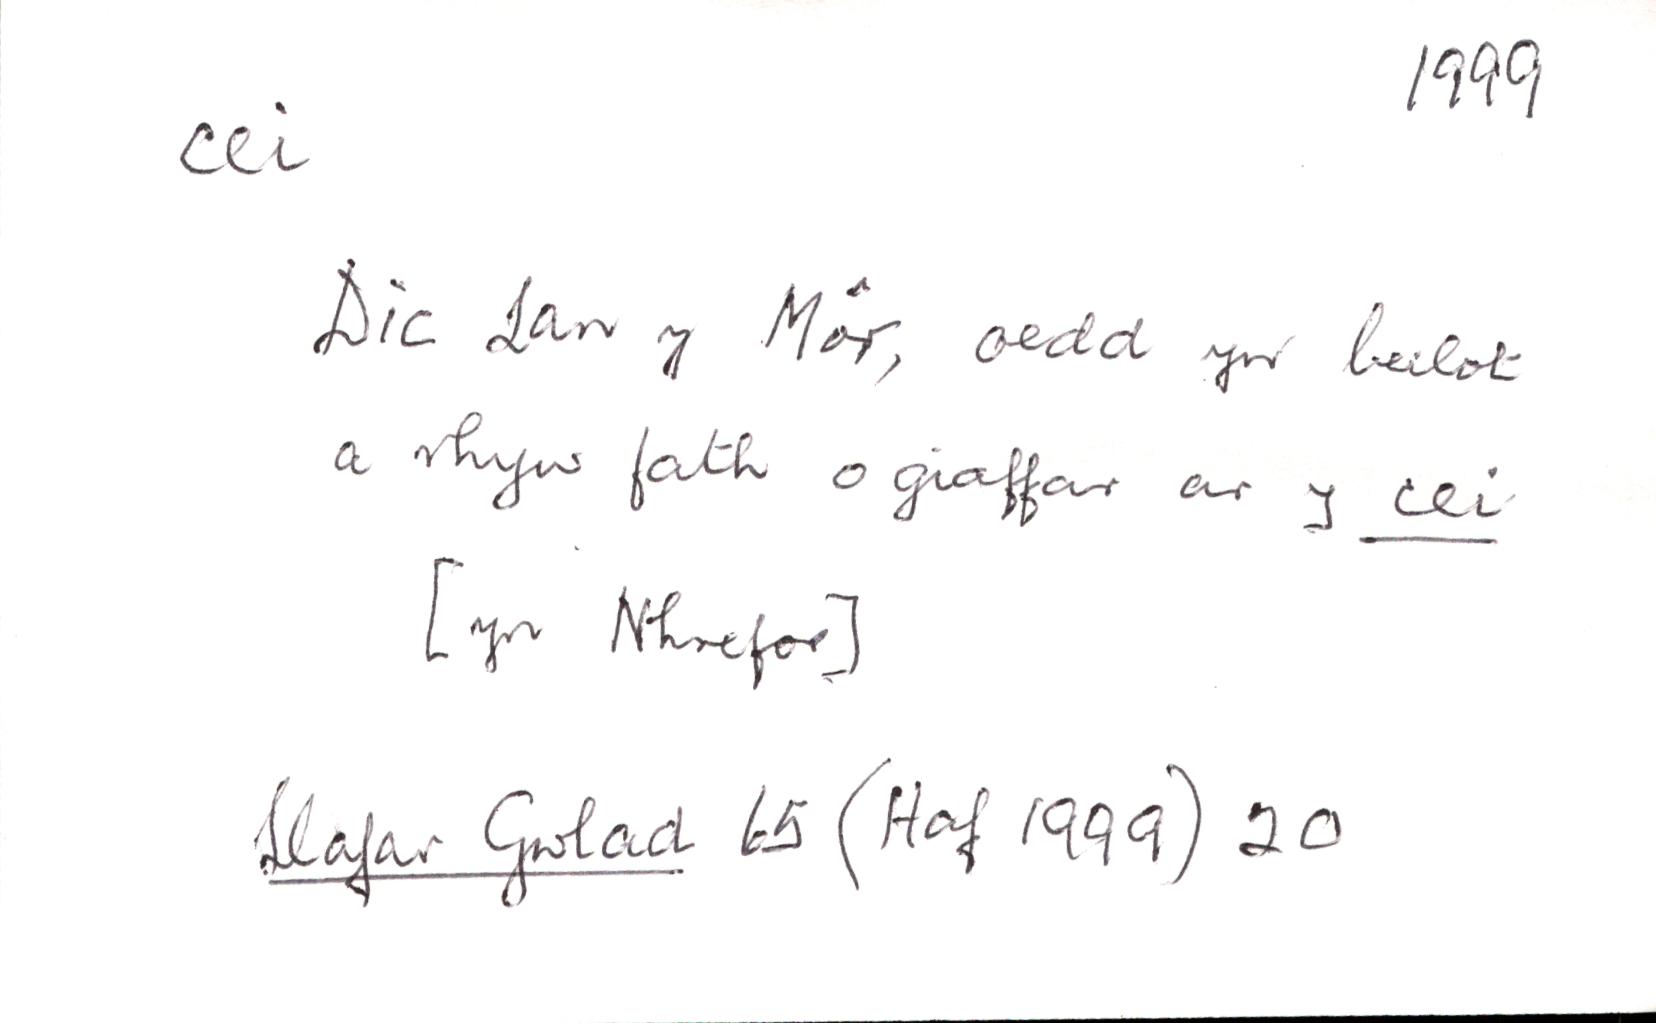 1999
cei
Dic Lan y Môr, oedd yr beilot
a rhyw fath o giaffar ar y cei
[yn Nhrefor]
Llafar Gwlad 65 (Haf 1999) 20